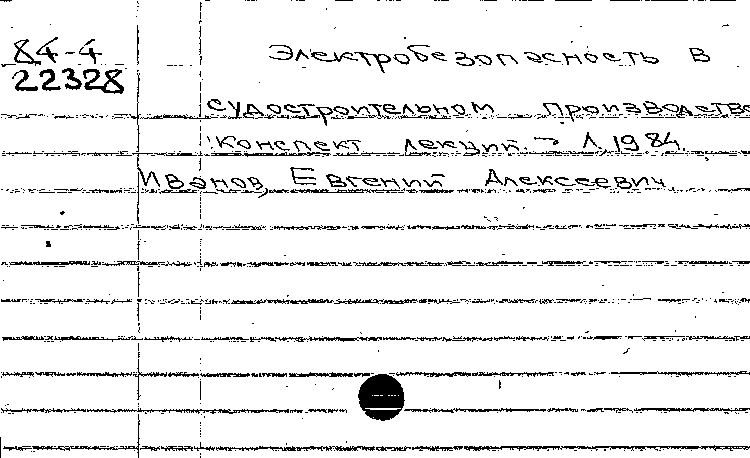 84-4
22328
Электробезопасность в
судостроительном производстве
: Конспект лекций. - Л, 1984.
Иванов, Евгений Алексеевич.